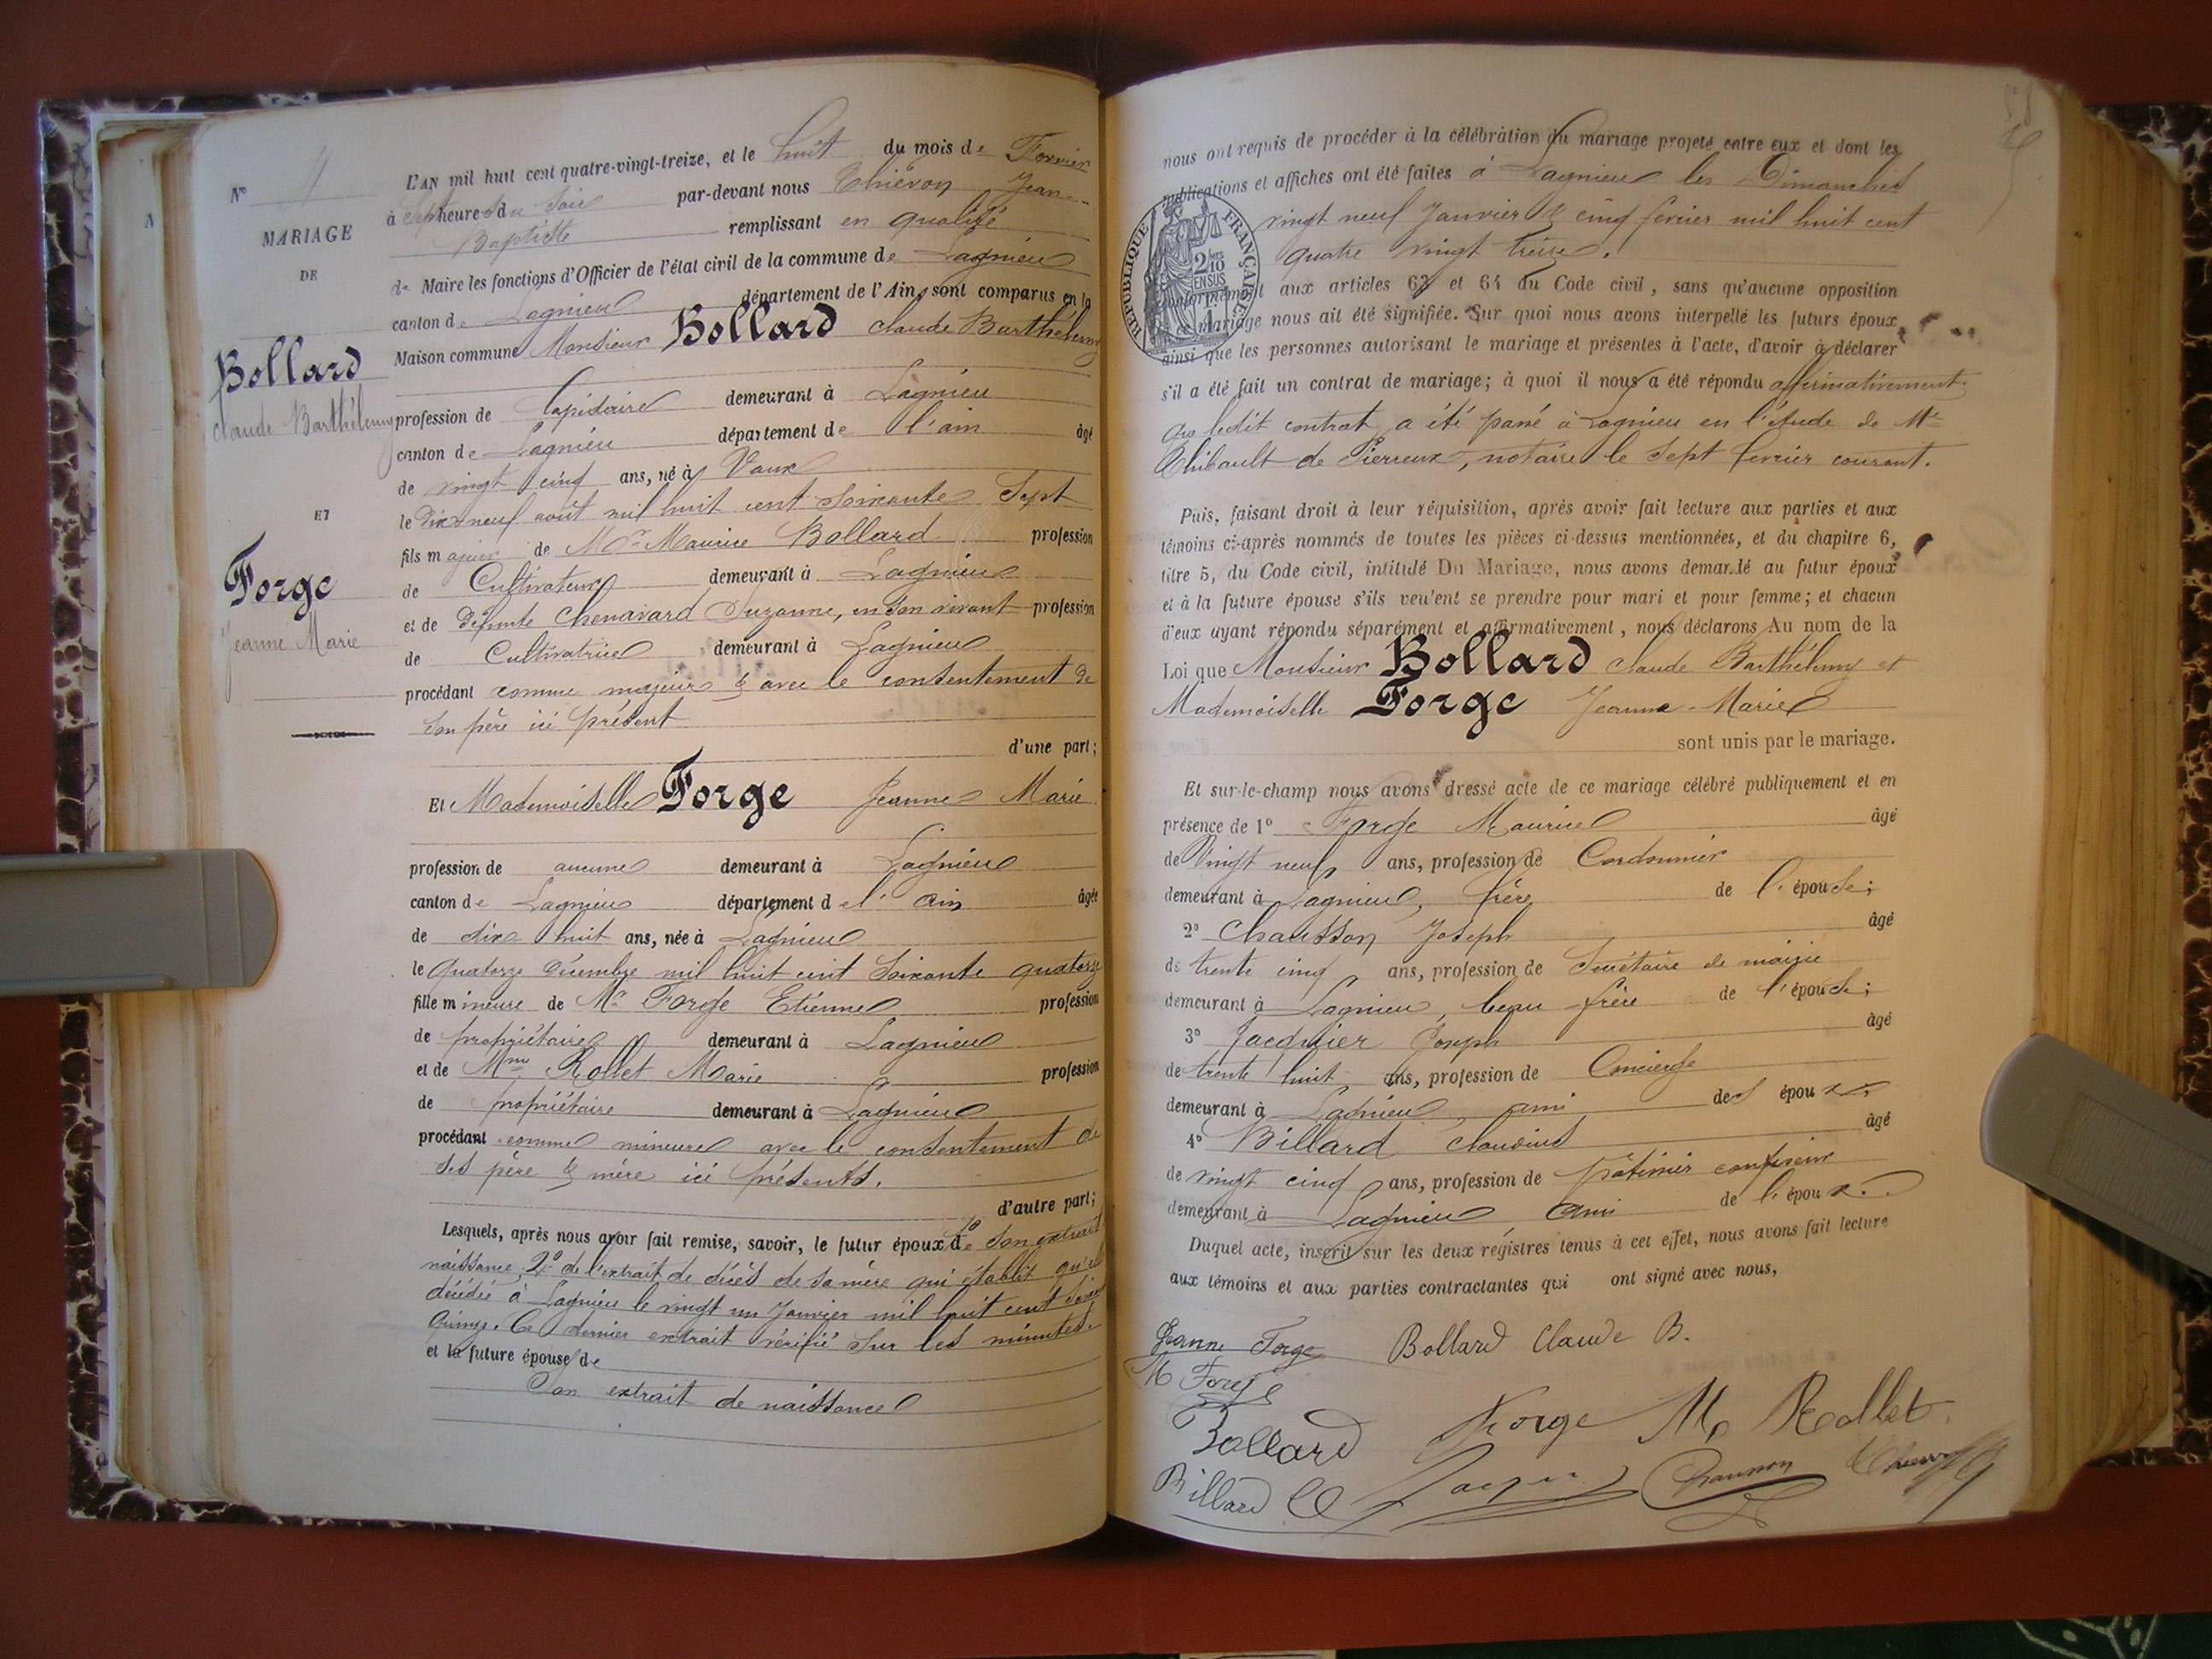 N° 4
MARIAGE
DE
Bollard
Claude Barthélemy
ET
Forge
Jeanne Marie
L'AN mil huit cent quatre-vingt-treize, et le huit du mois de Fevrier
à Sept heures du Soir par-devant nous Thiévon Jean-
Baptiste remplissant en qualité
de Maire les fonctions d'Officier de l'état civil de la commune de Lagnieu
canton de Lagnieu département de l'Ain, sont comparus en la
Maison commune Monsieur Bollard Claude Barthélemy
profession de Lapidaire demeurant à Lagnieu
canton de Lagnieu département de l'ain âgé
de vingt cinq ans, né à Vaux
le Dix neuf août mil huit cent Soixante Sept
fils majeur de Mr Maurice Bollard profession
de Cultivateur demeurant à Lagnieu
et de défunte Chenavard Suzanne, en son vivant profession
de Cultivatrice demeurant à Lagnieu
procédant comme majeur & avec le consentement de
Son père ici présent
d'une part;
Et Mademoiselle Forge Jeanne Marie
profession de aucune demeurant à Lagnieu
canton de Lagnieu département de l' Ain âgée
de dix huit ans, née à Lagnieu
le Quatorze Décembre mil huit cent Soixante quatorze
fille mineure de Mr Forge Etienne profession
de propriétaire demeurant à Lagnieu
et de Mme Rollet Marie profession
de propriétaire demeurant à Lagnieu
procédant comme mineure avec le consentement de
Ses père & mère ici présents.
d'autre part;
Lesquels, après nous avoir fait remise, savoir, le futur époux de 1° Son extrait
naissance; 2° de l'extrait de décès de sa mère qui établit qu'elle
décédée à Lagnieu le vingt un Janvier mil huit cent Soixante
Quinze. Ce dernier extrait vérifié Sur les minutes.
et la future épouse de
Son extrait de naissance
nous ont requis de procéder à la célébration du mariage projeté entre eux et dont les
publications et affiches ont été faites à Lagnieu les Dimanches
vingt neuf Janvier & cinq fevrier mil huit cent
quatre vingt treize.
RÉPUBLIQUE FRANÇAISE
2/10 EN SUS
conformément aux articles 63 et 64 du Code civil, sans qu'aucune opposition
à ce mariage nous ait été signifiée. Sur quoi nous avons interpellé les futurs époux
ainsi que les personnes autorisant le mariage et présentes à l'acte, d'avoir à déclarer
s'il a été fait un contrat de mariage; à quoi il nous a été répondu affirmativement.
Que ledit contrat a été passé à Lagnieu en l'étude de Me
Thibault de Pierreux, notaire le Sept fevrier courant.
Puis, faisant droit à leur réquisition, après avoir fait lecture aux parties et aux
témoins ci-après nommés de toutes les pièces ci-dessus mentionnées, et du chapitre 6,
titre 5, du Code civil, intitulé Du Mariage, nous avons demandé au futur époux
et à la future épouse s'ils veulent se prendre pour mari et pour femme; et chacun
d'eux ayant répondu séparément et affirmativement, nous déclarons Au nom de la
Loi que Monsieur Bollard Claude Barthélemy et
Mademoiselle Forge Jeanne-Marie
sont unis par le mariage.
Et sur-le-champ nous avons dressé acte de ce mariage célébré publiquement et en
présence de 1° Forge Maurice âgé
de Vingt neuf ans, profession de Cordonnier
demeurant à Lagnieu, frère de l'épouse;
2° Chausson Joseph âgé
de trente cinq ans, profession de Secrétaire de mairie
demeurant à Lagnieu, beau frère de l'épouse;
3° Jacquier Joseph âgé
de trente huit ans, profession de Concierge
demeurant à Lagnieu, ami des époux;
4° Billard Claudius âgé
de vingt cinq ans, profession de pâtissier confiseur
demeurant à Lagnieu ami de l'époux.
Duquel acte, inscrit sur les deux régistres tenus à cet effet, nous avons fait lecture
aux témoins et aux parties contractantes qui ont signé avec nous,
Jeanne Forge Bollard Claude B.
M Forge
Bollard Forge M Rollet
Billard C Jacquier Chausson